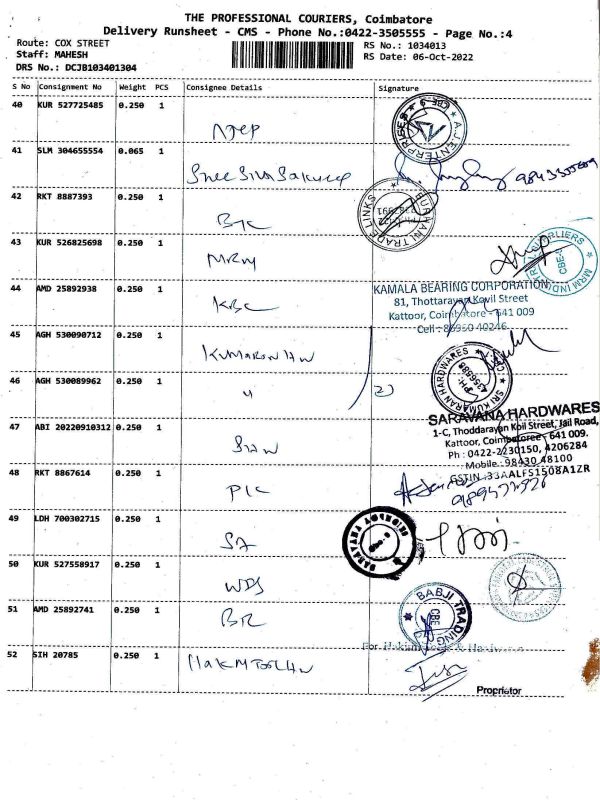 THE PROFESSIONAL COURIERS, Coimbatore
Delivery Runsheet - CMS - Phone No.:0422-3505555 - Page No.:4
Route: COX STREET
Staff: MAHESH
DRS No.: DCJB103401304
RS No.: 1034013
RS Date: 06-Oct-2022
S No Consignment No Weight PCS Consignee Details Signature
40 KUR 527725485 0.250 1
A.J.ENTERPRISES CBE-9
41 SLM 304655554 0.065 1
Sree Siva Sakthi
42 RKT 8887393 0.250 1
BTC
BURHANI TRADE LINKS
43 KUR 526825698 0.250 1
MRM
CBE
44 AMD 25892938 0.250 1
KBC
KAMALA BEARING CORPORATION
81, Thottarayan Kovil Street
Kattoor, Coimbatore - 641 009
Cell : 86950 40246
45 AGH 530090712 0.250 1
KUMARAN HW
SRI KUMARAN HARDWARES
PH: 4356989
46 AGH 530089962 0.250 1
"
2)
47 ABI 20220910312 0.250 1
SHW
SARAVANA HARDWARES
1-C, Thoddarayan Koil Street, Jail Road,
Kattoor, Coimbatoree - 641 009.
Ph : 0422-2230150, 4206284
Mobile : 98430 48100
GSTIN :33AALFS1508A1ZR
48 RKT 8867614 0.250 1
PIC
49 LDH 700302715 0.250 1
SA
50 KUR 527558917 0.250 1
WDS
51 AMD 25892741 0.250 1
BTR
BABJI TRADING
CBE
52 SIH 20785 0.250 1
For Hakim Tools & Hardware
HAKM TOOL HW
Proprietor